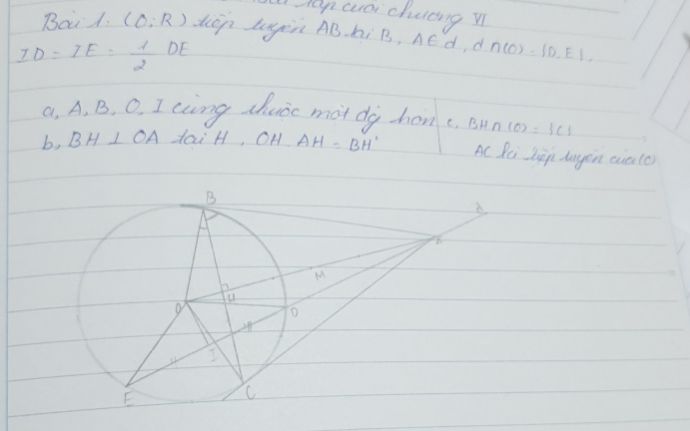 tập cuối chương VI
Bài 1: (O;R) tiếp tuyến AB tại B, A∈d, d∩(O) = {D,E},
ID = IE = 1/2 DE
a, A, B, O, I cùng thuộc một đg tròn
c, BH∩(O) = {C}
b, BH ⊥ OA tại H, OH.AH = BH²
AC là tiếp tuyến của (O)
B
d
A
M
H
O
D
I
E
C